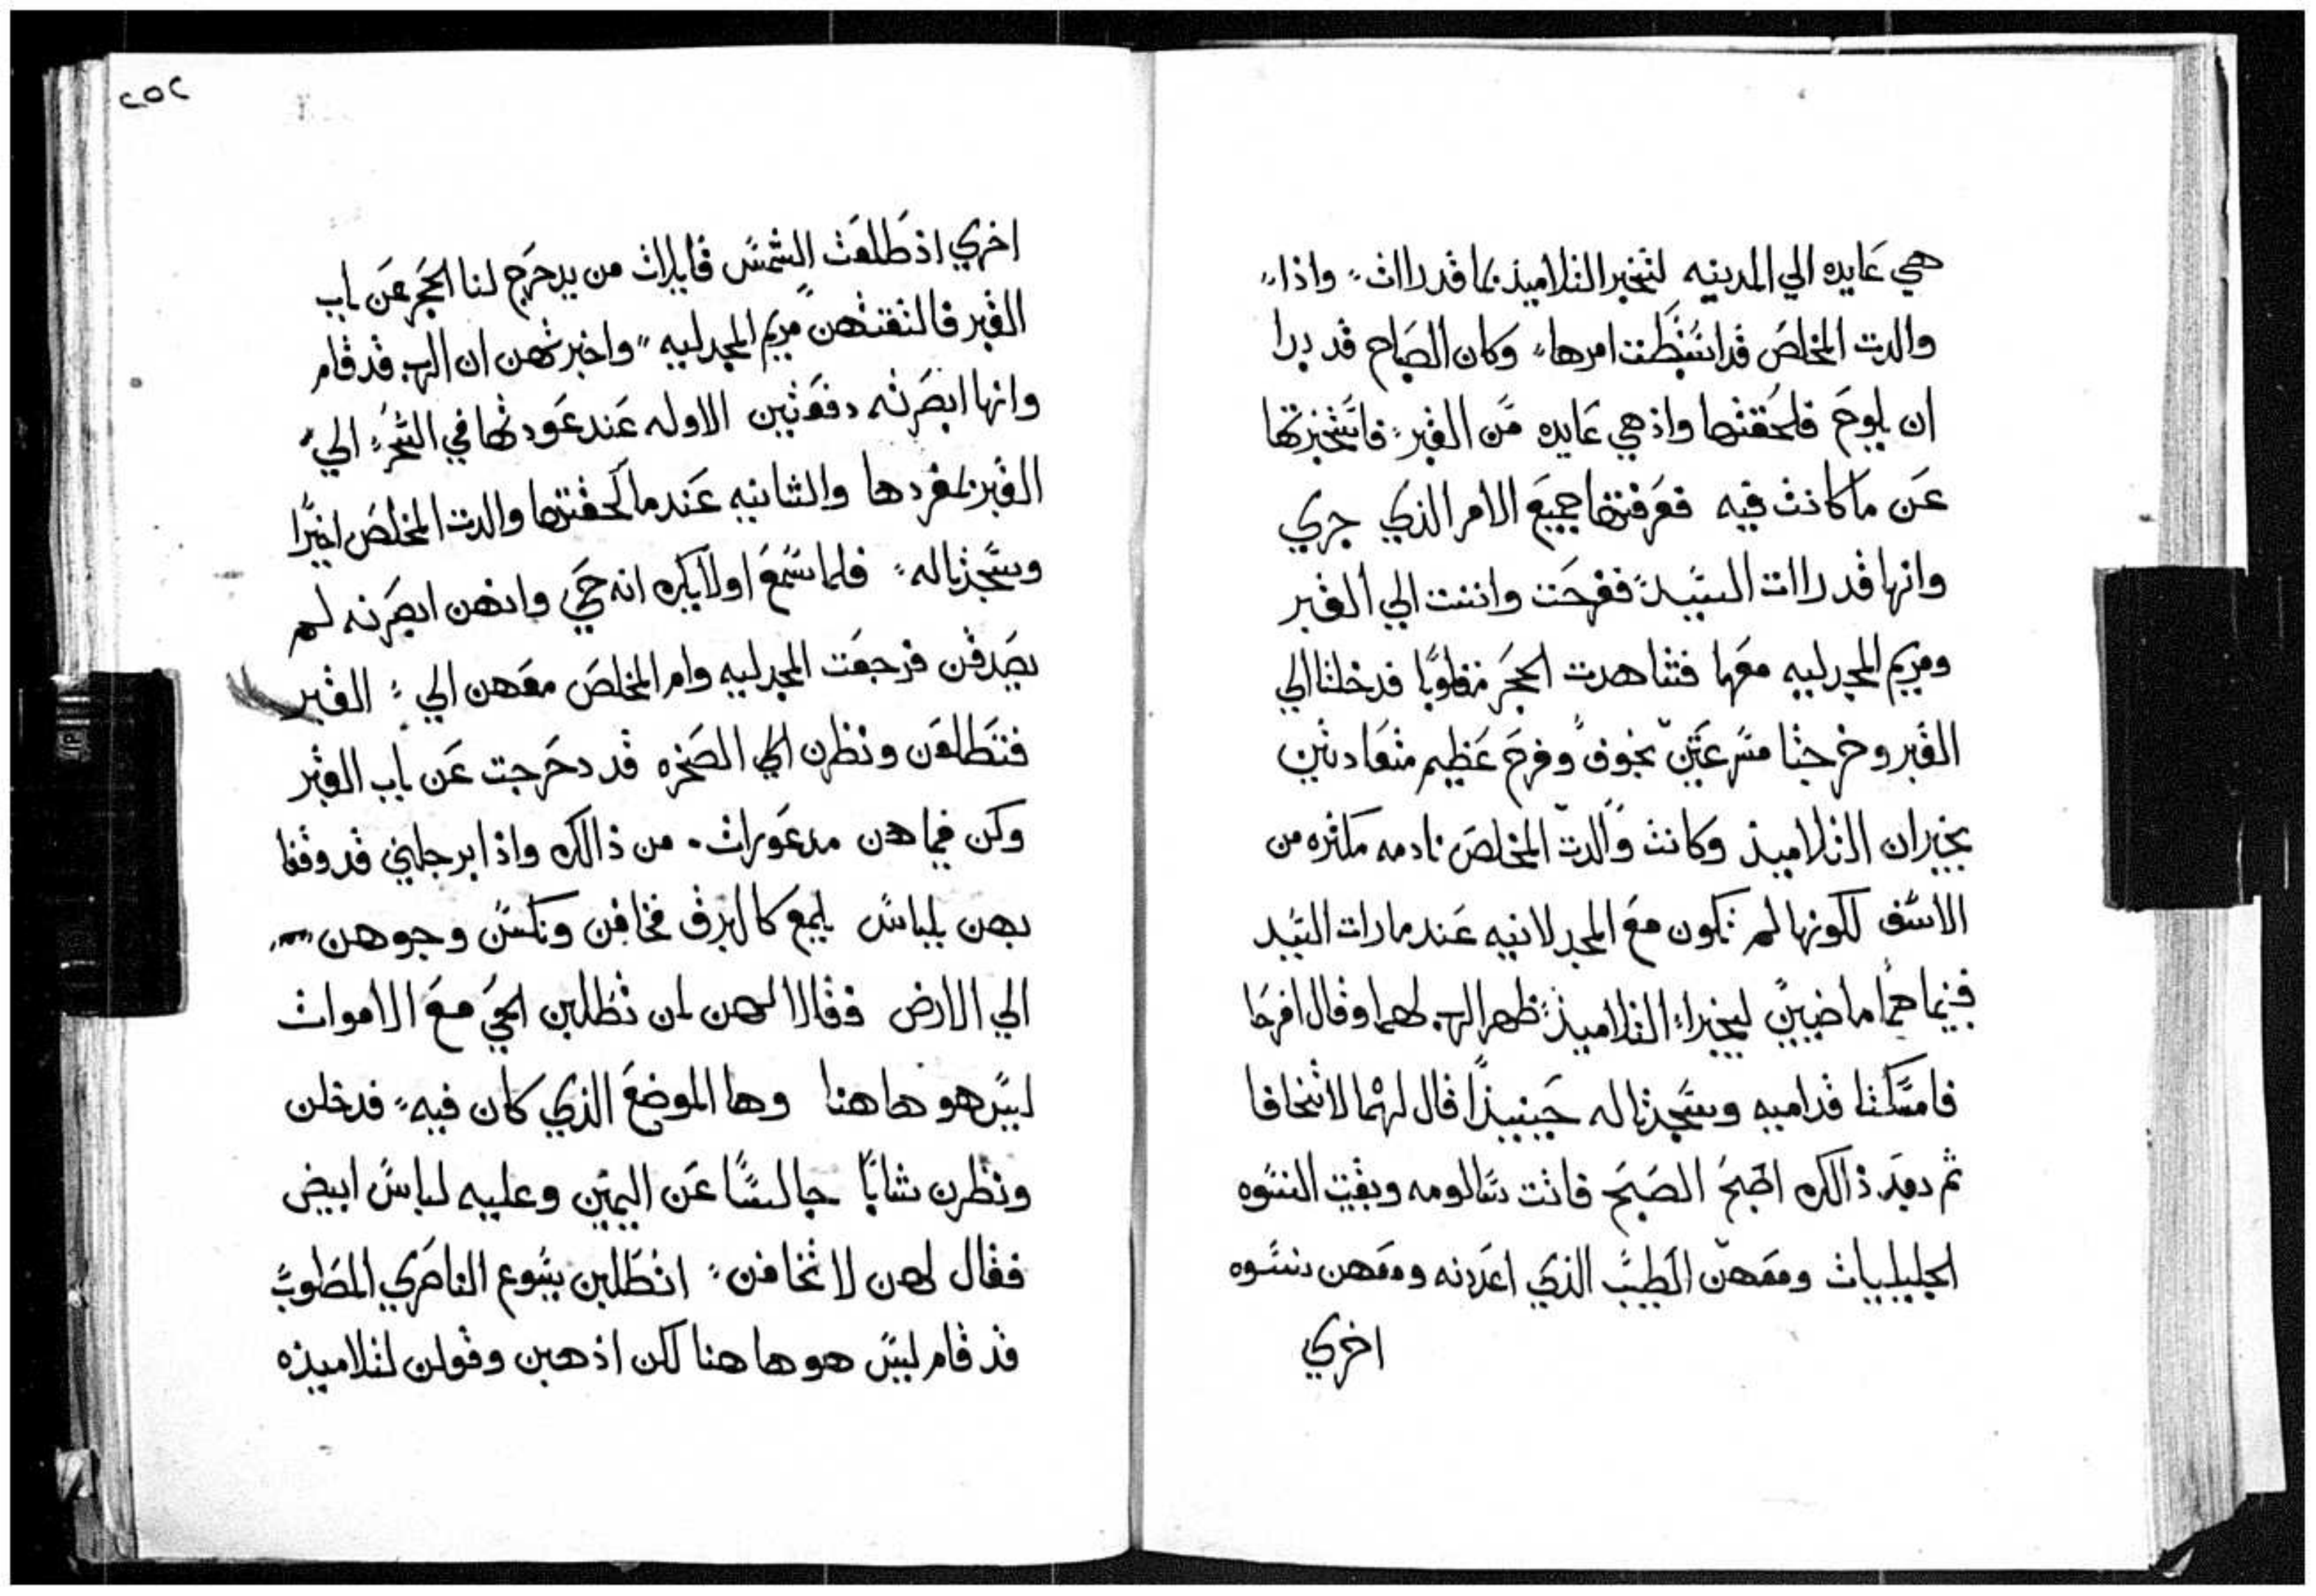 هي عايده الي المدينه لتخبر التلاميذ بما قد راات واذا
والدت المخلص قد استبطت امرها وكان الصباح قد بدا
ان يلوح فلحقتها واذ هي عايده من القبر فاستخبرتها
عن ما كانت فيه فعرفتها جميع الامر الذي جري
وانها قد راات السيد ففرحت واتت الي القبر
ومريم المجدليه معها فشاهدت الحجر مقلوبًا فدخلتا الي
القبر وخرجتا مسرعتين بخوف وفرح عظيم متعادتين
يخبران التلاميذ وكانت والدت المخلص نادمه مكثره من
الاسف لكونها لم تكون مع المجدلانيه عندما رات السيد
فبينما هما ماضيين ليخبرا التلاميذ ظهر الرب لهما وقال افرحا
فامسكتا قداميه وسجدتا له حينيذًا قال لهما لا تخافا
ثم بعد ذالك اصبح الصبح فاتت سالومه وبقيت النسوه
الجليليات ومعهن الطيب الذي اعدنه ومعهن نسوه
اخري
٢٥٢
اخري اذ طلعت الشمس قايلات من يدحرج لنا الحجر عن باب
القبر فالتقتهن مريم المجدليه واخبرتهن ان الرب قد قام
وانها ابصرته دفعتين الاوله عند عودتها في السحر الي
القبر بمفردها والثانيه عندما لحقتها والدت المخلص اخيرًا
وسجدتا له فلما سمع اولايك انه حي وانهن ابصرنه لم
يصدقن فرجعت المجدليه وام المخلص معهن الي القبر
فتطلعن ونظرن الي الصخره قد دحرجت عن باب القبر
وكن فيما هن مدعورات من ذالك واذا برجلين قد وقفا
بهن بلباس يلمع كالبرق فخافن ونكسن وجوهن
الي الارض فقالا لهن لمن تطلبن الحي مع الاموات
ليس هو هاهنا وها الموضع الذي كان فيه فدخلن
ونظرن شابًا جالسًا عن اليمين وعليه لباس ابيض
فقال لهن لا تخافن انتطلبن يسوع الناصري المصلوب
قد قام ليس هو هاهنا لكن اذهبن وقولن لتلاميذه